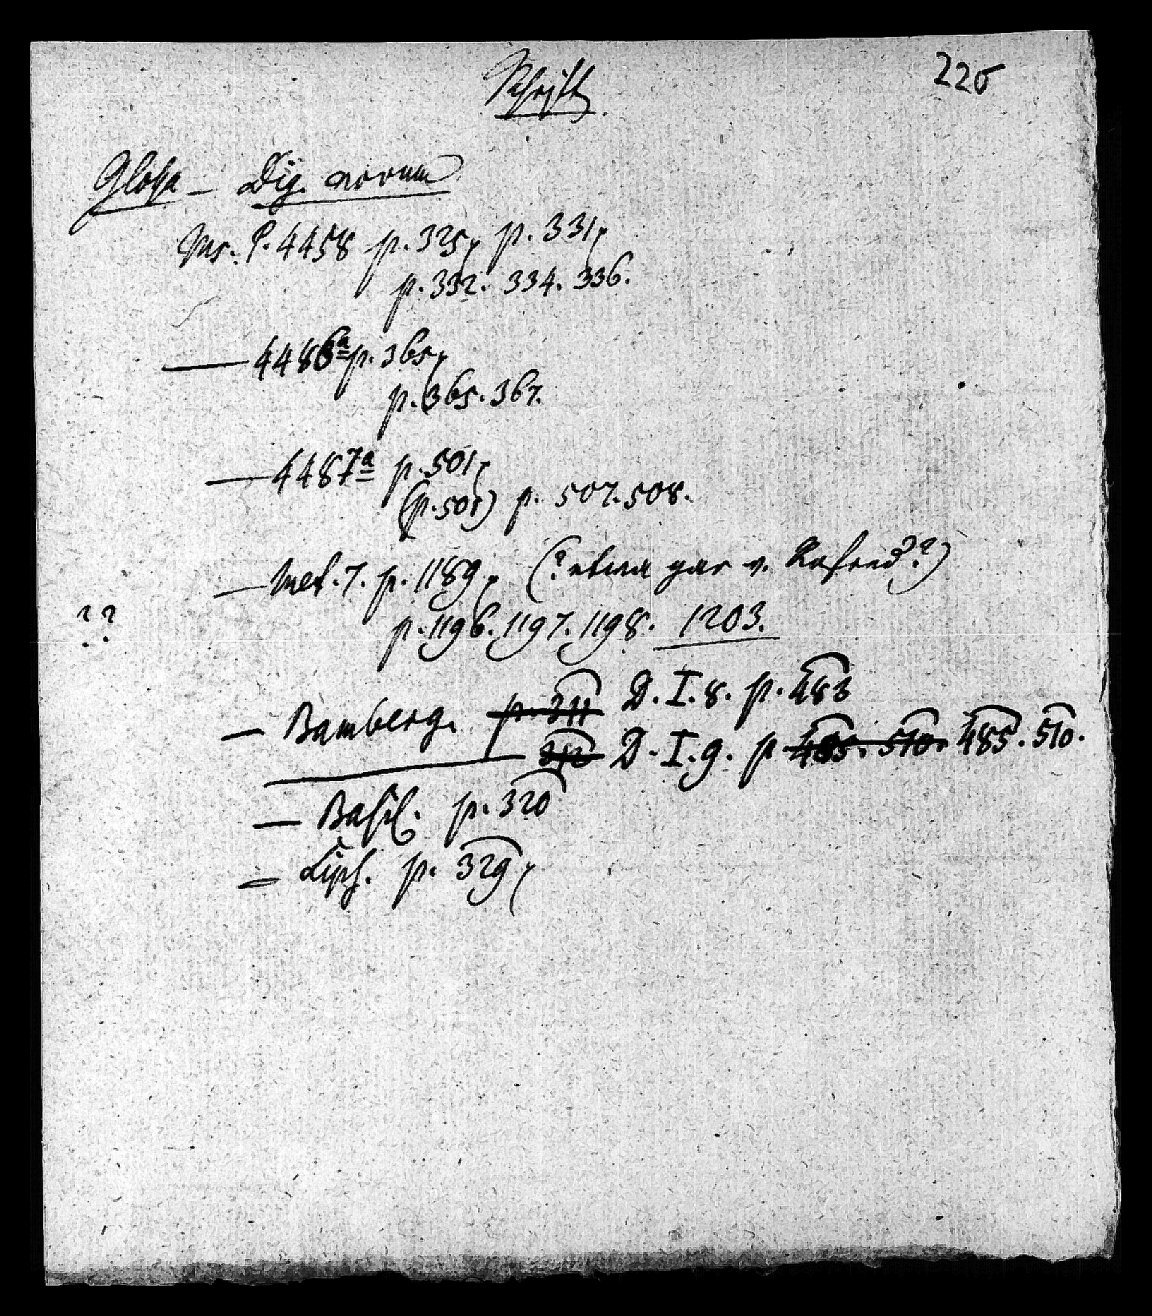 Schrift.
226
Glosse – Dig. novum
Ms. P. 4458 p. 325, p. 331,
p. 332. 334. 336.
— 4486a p. 365,
p. 365. 367.
— 4487a p. 501,
(p. 501) p. 507. 508.
— Met. 7. p. 1189, (? etwa gar v. Rofred??)
?? p. 1196. 1197. 1198. 1203.
— Bamberg. p. 311 D. I. 8. p. 483
312 D. I. 9. p 485. 510. 485. 510.
— Basil. p. 320
— Lips. p. 329,